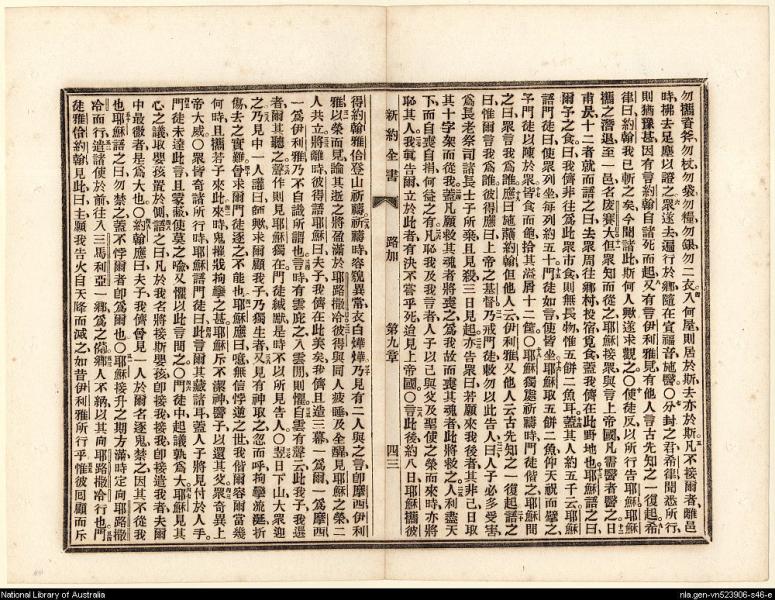 勿攜者斧勿杖勿袋勿糧勿銀勿二衣入何屋則居於斯去亦於斯凡不接爾者離邑
時拂去足塵以證之衆遂去遍行於鄉隨在宣福音施醫〇分封之君希律聞悉所行
則猶豫甚因有言約翰自諸死而起又有言伊利雅見有他人言古先知之一復起希
律曰約翰我已斬之矣今聞諸此斯何人歟遂求觀之〇使徒反以所行告耶穌耶穌
攜之潛退至一邑名庇賽大但衆知而從之耶穌接衆與言上帝國凡需醫者醫之日
甫昃十二者就而語之曰去衆周往鄉村投宿覓食蓋我儕在此野地也耶穌語之曰
爾予之食曰我儕非往爲此衆市食則無長物惟五餅二魚耳蓋其人約五千云耶穌
語門徒曰使衆列坐每列約五十門徒如言使皆坐耶穌取五餅二魚仰天祝而擘之
予門徒以陳於衆皆食而飽拾其溢屑十二筐〇耶穌獨處祈禱時門徒偕之耶穌問
之曰衆言我爲誰應曰施蘸約翰但他人云伊利雅又他人云古先知之一復起語之
曰惟爾言我爲誰彼得應曰上帝之基督乃戒門徒敕勿以此告人曰人子必多受害
爲長老祭司諸長士子所棄且見殺三日見起亦告衆曰若願來我後者其非己日取
其十字架而從我蓋凡願救其魂者將喪之爲我故而喪其魂者此將救之人利盡天
下而自喪自捐何益之有凡恥我及我言者人子以己與父及聖使之榮而來時亦將
恥其人我寔告爾立於此者有決不嘗乎死迨見上帝國〇言此後約八日耶穌攜彼
新約全書 路加 第九章 四三
得約翰雅伯登山祈禱祈禱時容貌異常衣白爗爗乃見有二人與之言卽摩西伊利
雅以榮而見論其逝之將盈滿於耶路撒冷彼得與同人疲睡及全醒見耶穌之榮二
人共立將離時彼得語耶穌曰夫子我儕在此美矣我儕且造三幕一爲爾一爲摩西
一爲伊利雅乃不自識所謂也言時有雲庇之入雲間則懼自雲有聲云此我子我選
者爾其聽之聲作則見耶穌獨在門徒緘默是時不以所見告人〇翌日下山大衆迎
之乃見中一人讙曰師歟求爾顧我子乃獨生者又見有神取之忽而呼拘攣流涎折
傷去之實難曾求爾門徒逐之不能也耶穌應曰噫無信悖逆之世我偕爾容爾當幾
何時且攜若子來此來時鬼摧戕拘攣之甚耶穌斥不潔神醫子以還其父衆奇異上
帝大威〇衆皆奇諸所行時耶穌語門徒曰此言爾其藏諸耳蓋人子將見付於人手
門徒未達此言且蒙蔽使莫之喻又懼以此言問之〇門徒中起議孰爲大耶穌見其
心之議取嬰孩置於側語之曰凡於我名將接斯嬰孩卽接我接我卽接遣我者夫爾
中最微者是爲大也〇約翰應曰夫子我儕曾見一人於爾名逐鬼禁之因其不從我
也耶穌語之曰勿禁之蓋不悖爾者卽爲爾也〇耶穌接升之期方滿時定向耶路撒
冷而行遣諸使於前往入三馬利亞一鄉爲之備鄉人不納以其向耶路撒冷行也門
徒雅伯約翰見此曰主願我告火自天降而滅之如昔伊利雅所行乎惟彼回顧而斥
National Library of Australia
nla.gen-vn523906-s46-e